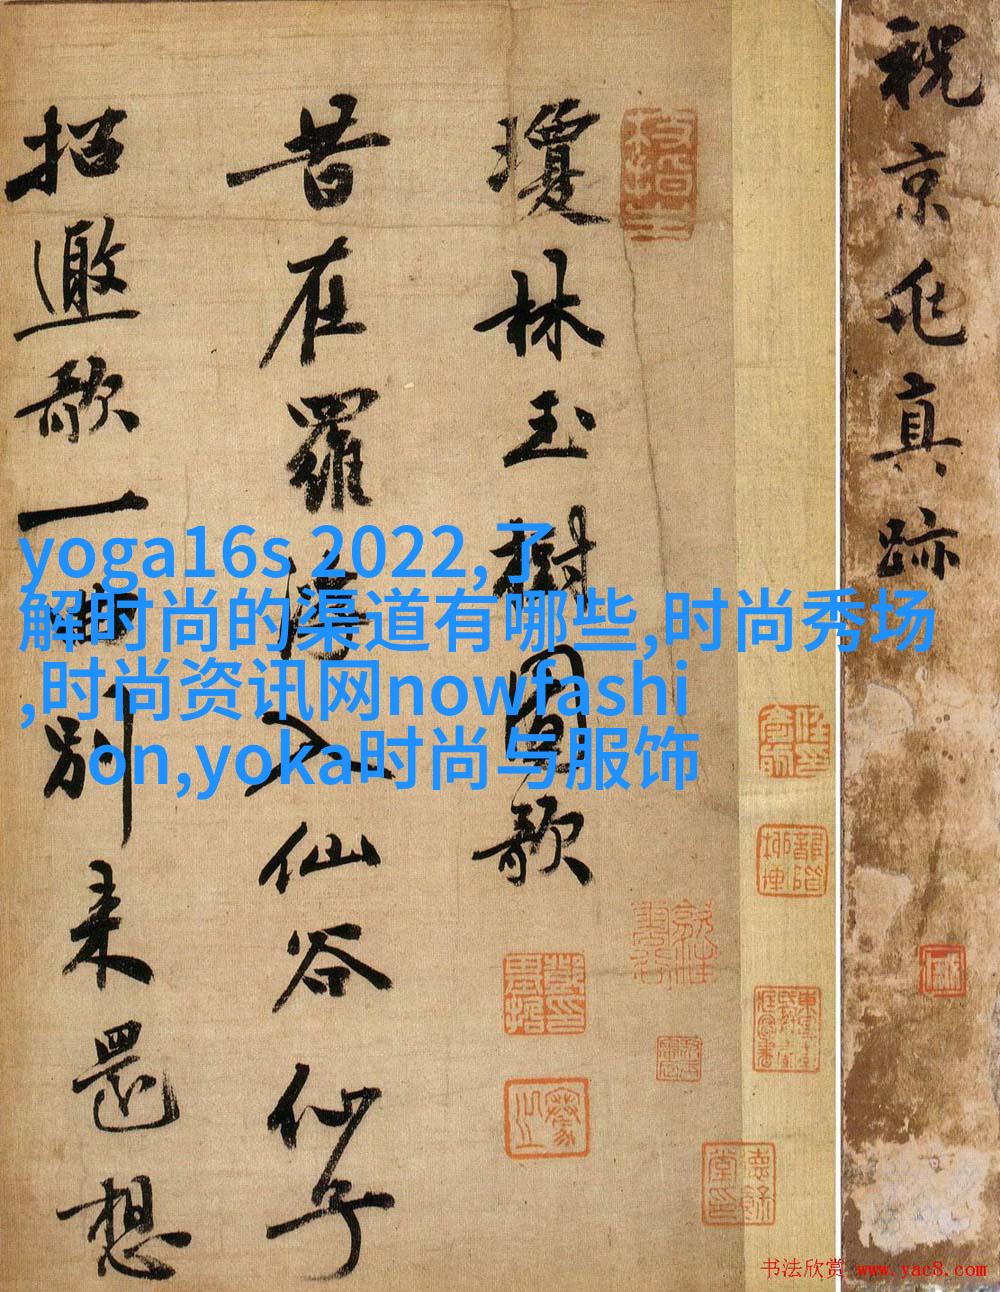 祝京兆真跡
瓊林玉樹圖歌
昔在羅浮入仙谷仙子
招邀歌一曲別来還想
yoga16s 2022,了
解时尚的渠道有哪些,时尚秀场
,时尚资讯网nowfashi
on,yoka时尚与服饰
书法欣赏 www.yac8.com